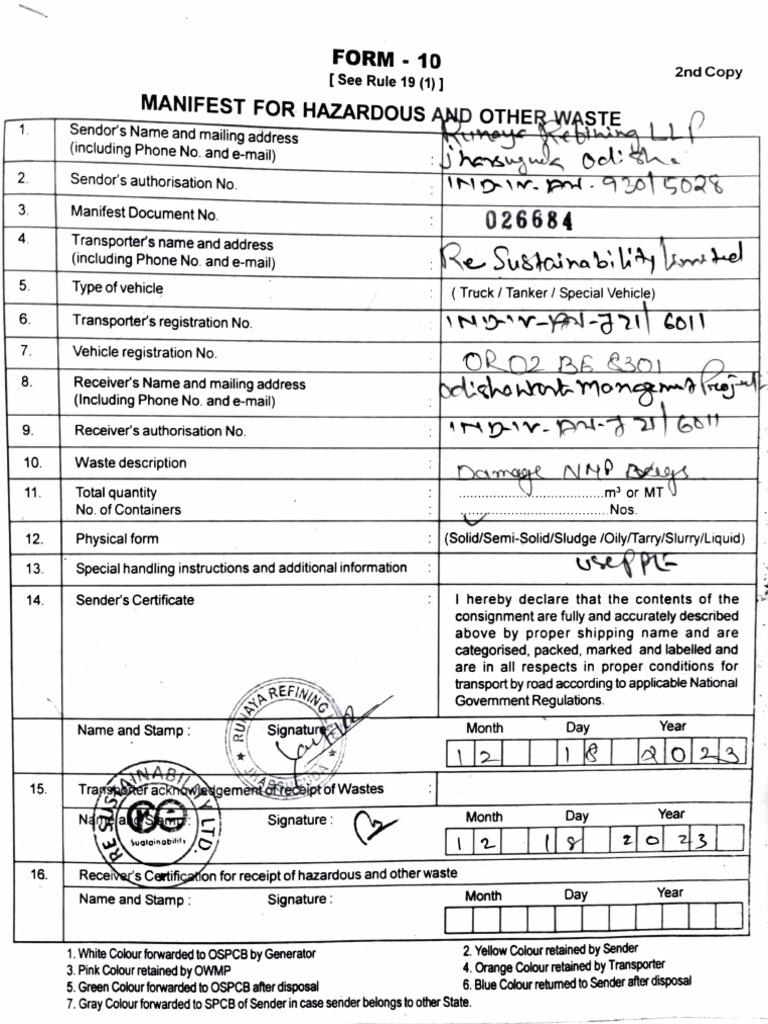 FORM - 10
[ See Rule 19 (1) ]
2nd Copy
MANIFEST FOR HAZARDOUS AND OTHER WASTE
1. Sendor's Name and mailing address : Runaya Refining LLP
(including Phone No. and e-mail) Jharsuguda Odisha
2. Sendor's authorisation No. : IND-IV-PN-930/5028
3. Manifest Document No. : 026684
4. Transporter's name and address
(including Phone No. and e-mail) : Re Sustainability Limited
5. Type of vehicle : ( Truck / Tanker / Special Vehicle)
6. Transporter's registration No. : IND-IV-PN-721/6011
7. Vehicle registration No. : OR02 BE 8301
8. Receiver's Name and mailing address
(Including Phone No. and e-mail) : Management Project
9. Receiver's authorisation No. : IND-IV-PN-721/6011
10. Waste description : Damage NMP Bags
11. Total quantity : m³ or MT
No. of Containers : Nos.
12. Physical form : (Solid/Semi-Solid/Sludge /Oily/Tarry/Slurry/Liquid)
13. Special handling instructions and additional information : use PPE
14. Sender's Certificate : I hereby declare that the contents of the
consignment are fully and accurately described
above by proper shipping name and are
categorised, packed, marked and labelled and
are in all respects in proper conditions for
transport by road according to applicable National
Government Regulations.
RUNAYA REFINING
JHARSUGUDA
Name and Stamp : Signature Month Day Year
12 18 2023
15. Transporter acknowledgement of receipt of Wastes
RE SUSTAINABILITY LTD.
Sustainability
Name and Stamp : Signature : Month Day Year
12 18 2023
16. Receiver's Certification for receipt of hazardous and other waste
Name and Stamp : Signature : Month Day Year
1. White Colour forwarded to OSPCB by Generator 2. Yellow Colour retained by Sender
3. Pink Colour retained by OWMP 4. Orange Colour retained by Transporter
5. Green Colour forwarded to OSPCB after disposal 6. Blue Colour returned to Sender after disposal
7. Gray Colour forwarded to SPCB of Sender in case sender belongs to other State.